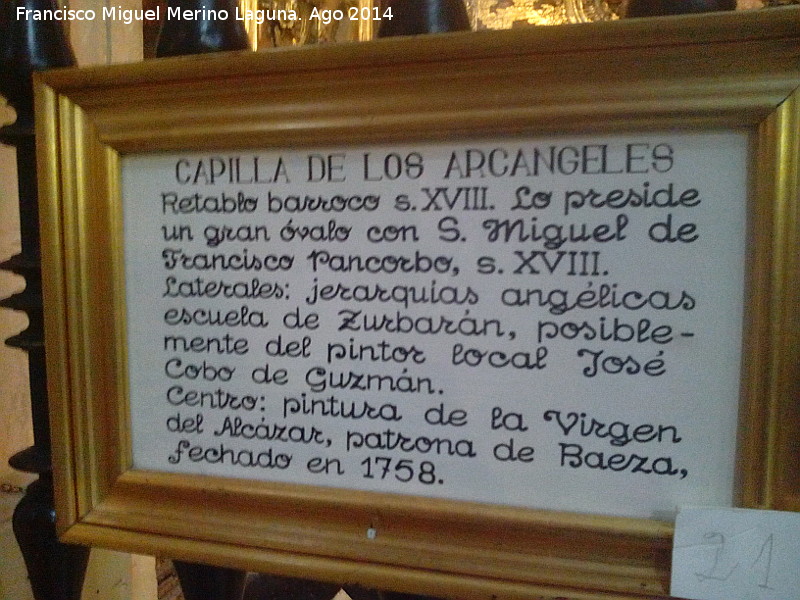 Francisco Miguel Merino Laguna. Ago 2014
CAPILLA DE LOS ARCANGELES
Retablo barroco s. XVIII. Lo preside
un gran óvalo con S. Miguel de
Francisco Pancorbo, s. XVIII.
Laterales: jerarquías angélicas
escuela de Zurbarán, posible-
mente del pintor local José
Cobo de Guzmán.
Centro: pintura de la Virgen
del Alcázar, patrona de Baeza,
fechado en 1758.
21